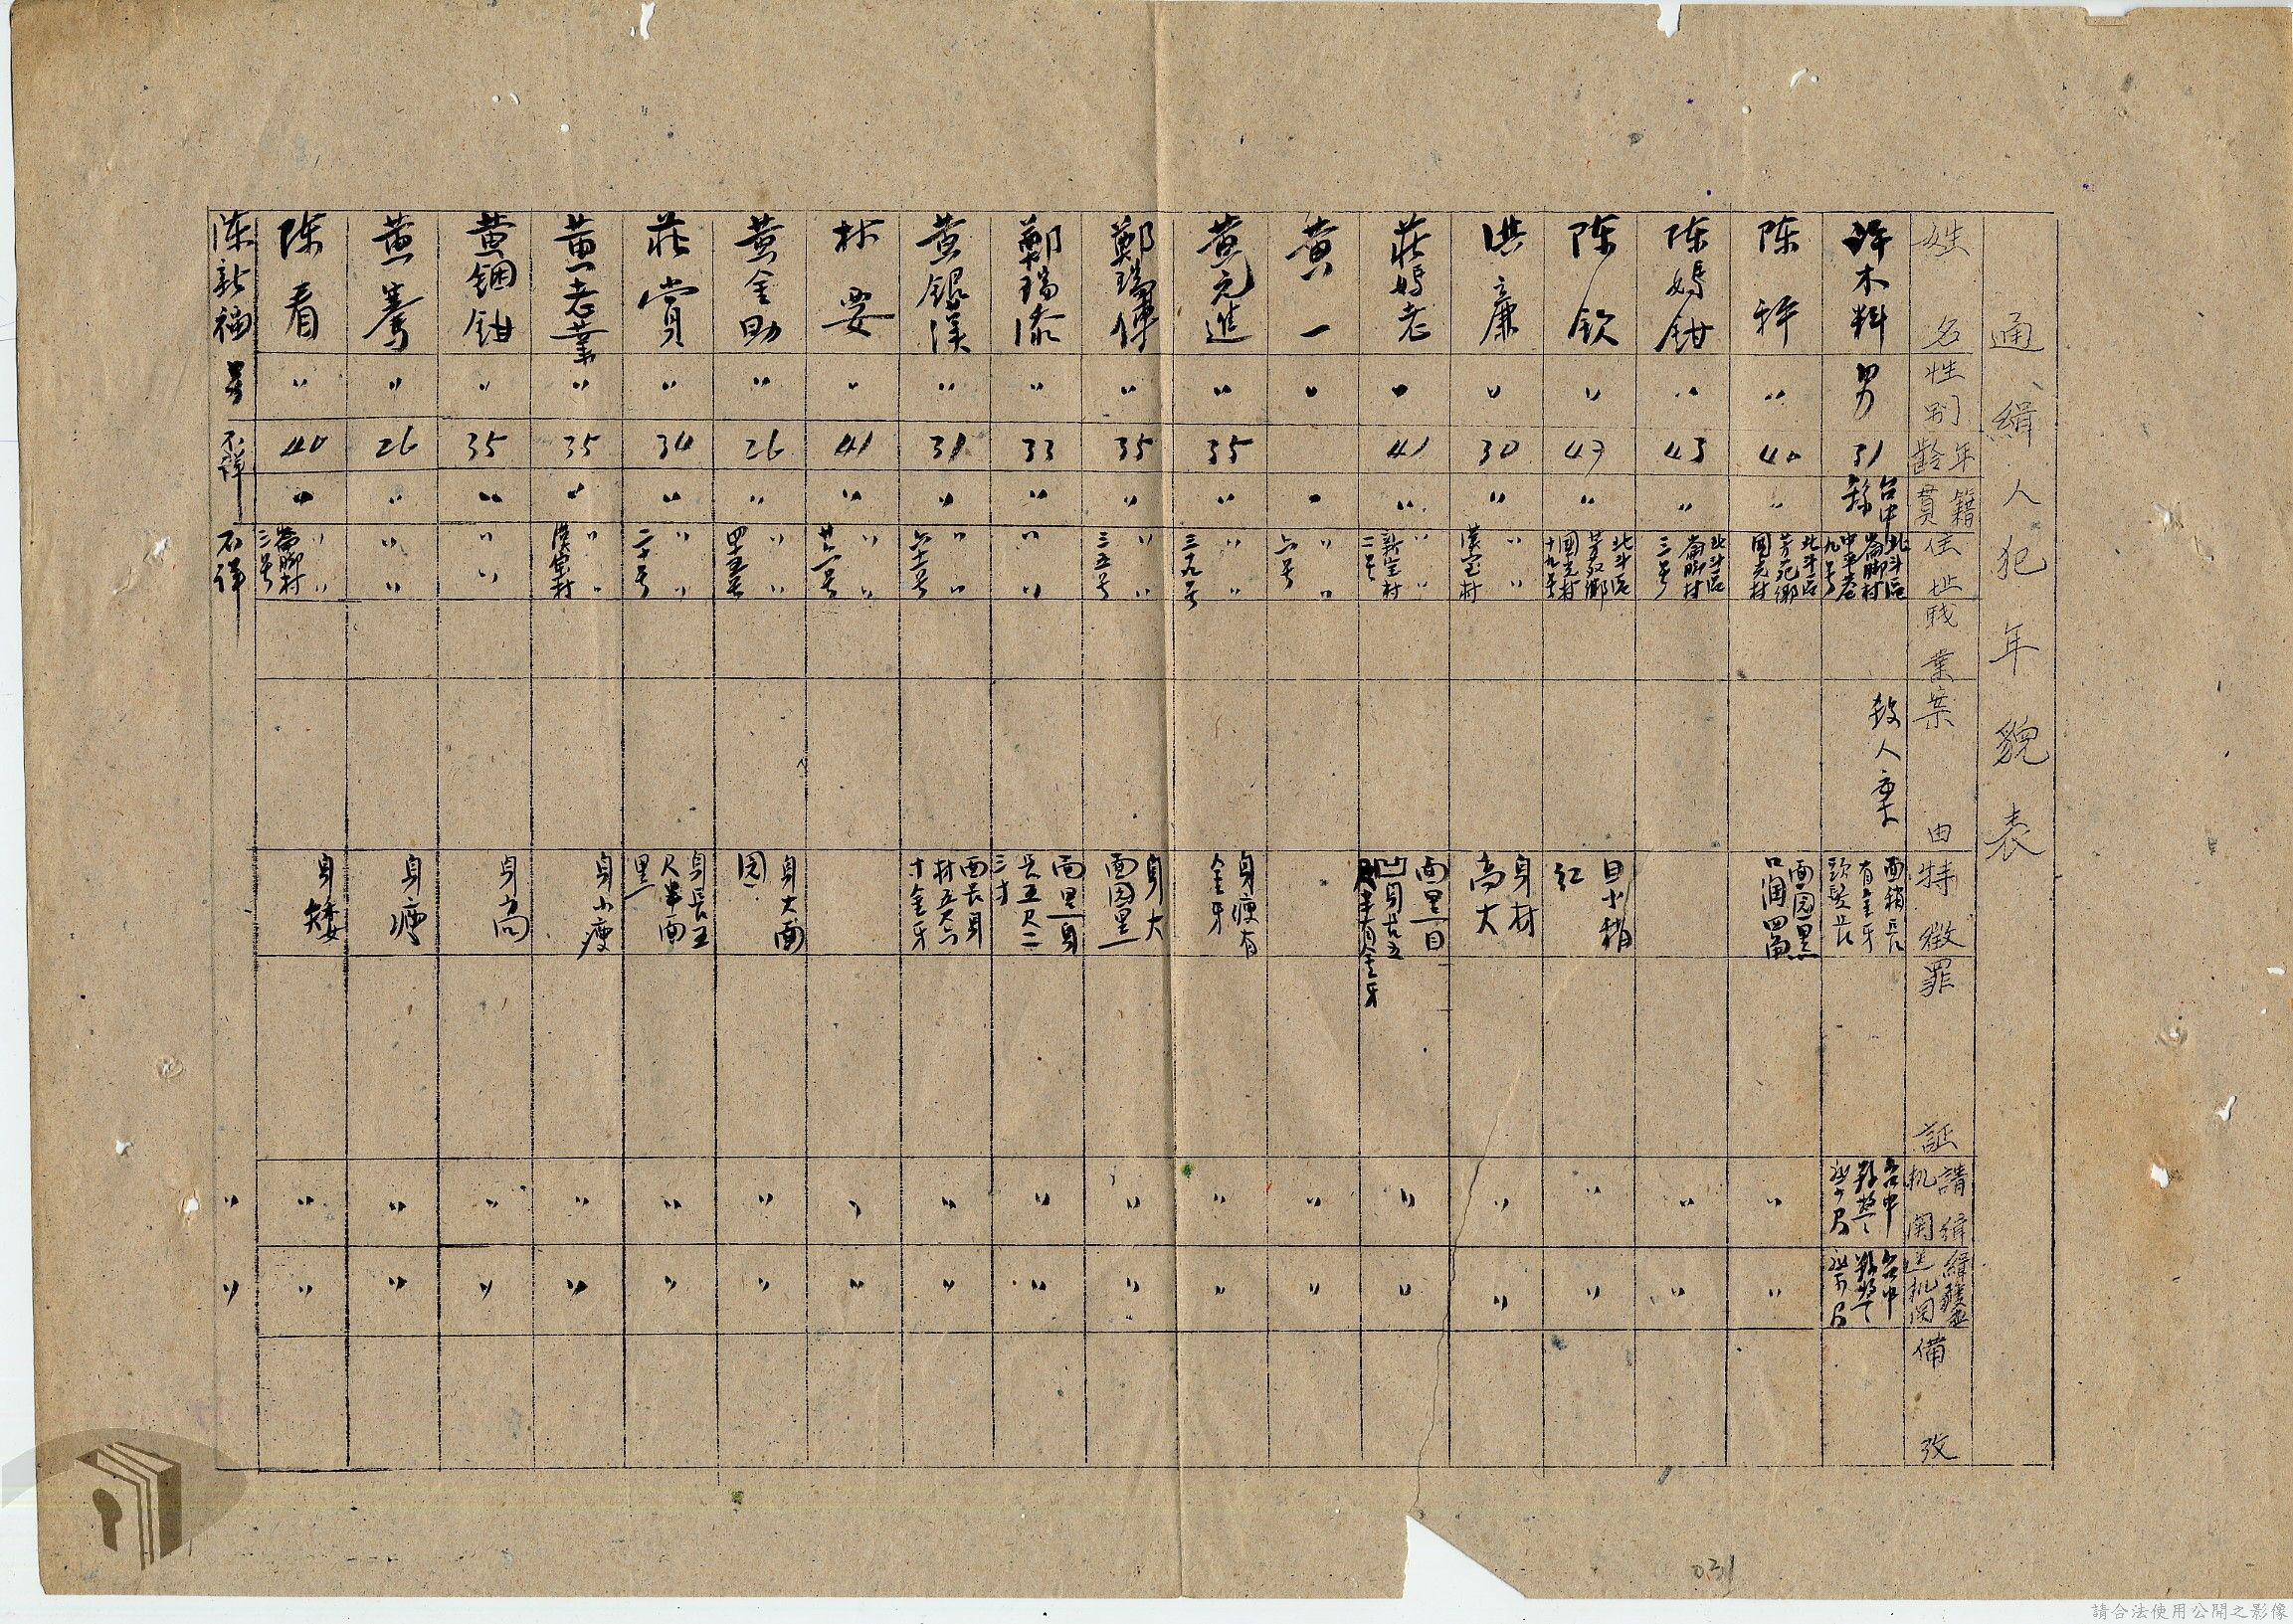 通緝人犯年貌表
姓名 性別 年齡 籍貫 住址 職業 案由 特徵 罪証 請緝机関 緝獲解送机関 備攷
許木料 男 31 台中縣 北斗區崙脚村中平巷九号 殺人案 面稍長有金牙頭髮长 台中縣警察局 台中縣警察局
陈秤 〃 40 〃 北斗區芳苑鄉國光村 面园黑口濶四齒 〃 〃
陈媽鉗 〃 43 〃 北斗區崙脚村三号 〃 〃
陈欽 〃 47 〃 北斗區芳苑鄉國光村十九号 目小稍红 〃 〃
洪廉 〃 30 〃 〃 〃 漢宝村 身材高大 〃 〃
莊媽老 〃 41 〃 〃 〃 新宝村二号 面黑目凹身长五尺半有金牙 〃 〃
黄一 〃 〃 〃 〃 六号 〃 〃
黄元進 〃 35 〃 〃 〃 三九号 身瘦有金牙 〃 〃
鄭瑞 〃 35 〃 〃 〃 三五号 身大面园黑 〃 〃
鄭瑞添 〃 33 〃 〃 〃 面黑身长五尺二三寸 〃 〃
黄銀漢 〃 31 〃 〃 〃 六十号 面长身材五尺六寸金牙 〃 〃
林要 〃 41 〃 〃 〃 廿六号 〃 〃
黄金助 〃 26 〃 〃 〃 四十五号 身大面园 〃 〃
莊賞 〃 34 〃 〃 〃 二十号 身长五尺半面黑 〃 〃
黄老業 〃 35 〃 〃 〃 漢宝村 身小瘦 〃 〃
黄錮鉗 〃 35 〃 〃 〃 身高 〃 〃
黄騫 〃 26 〃 〃 〃 身瘦 〃 〃
陈看 〃 40 〃 〃 〃 崙脚村三号 身矮 〃 〃
陈新福 男 不詳 不詳 〃 〃
031
請合法使用公開之影像